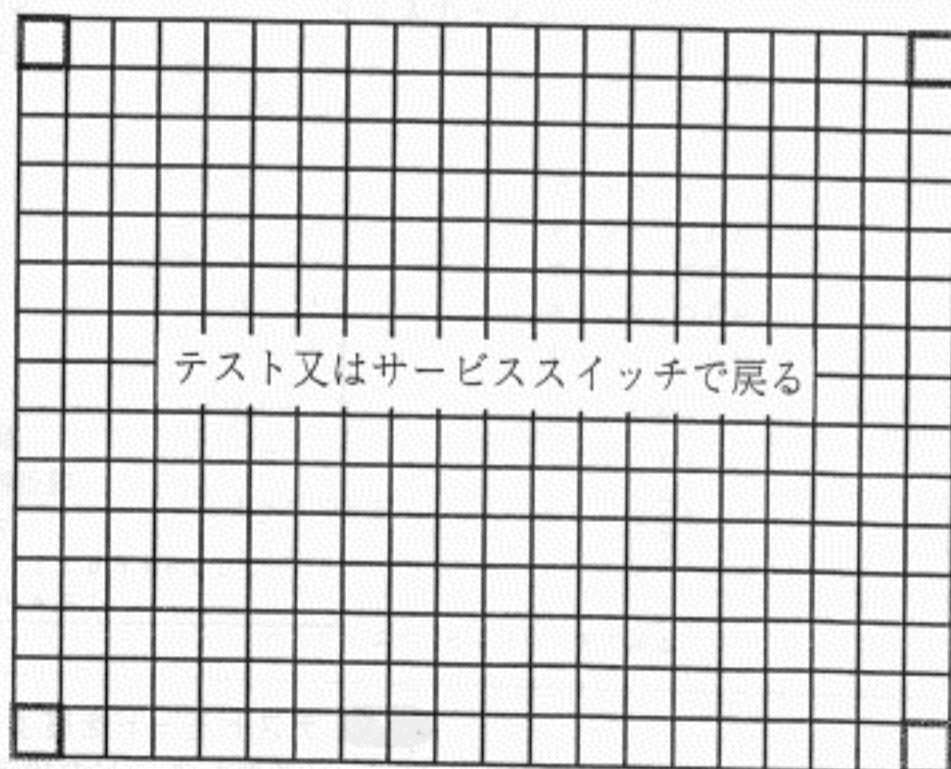 テスト又はサービススイッチで戻る